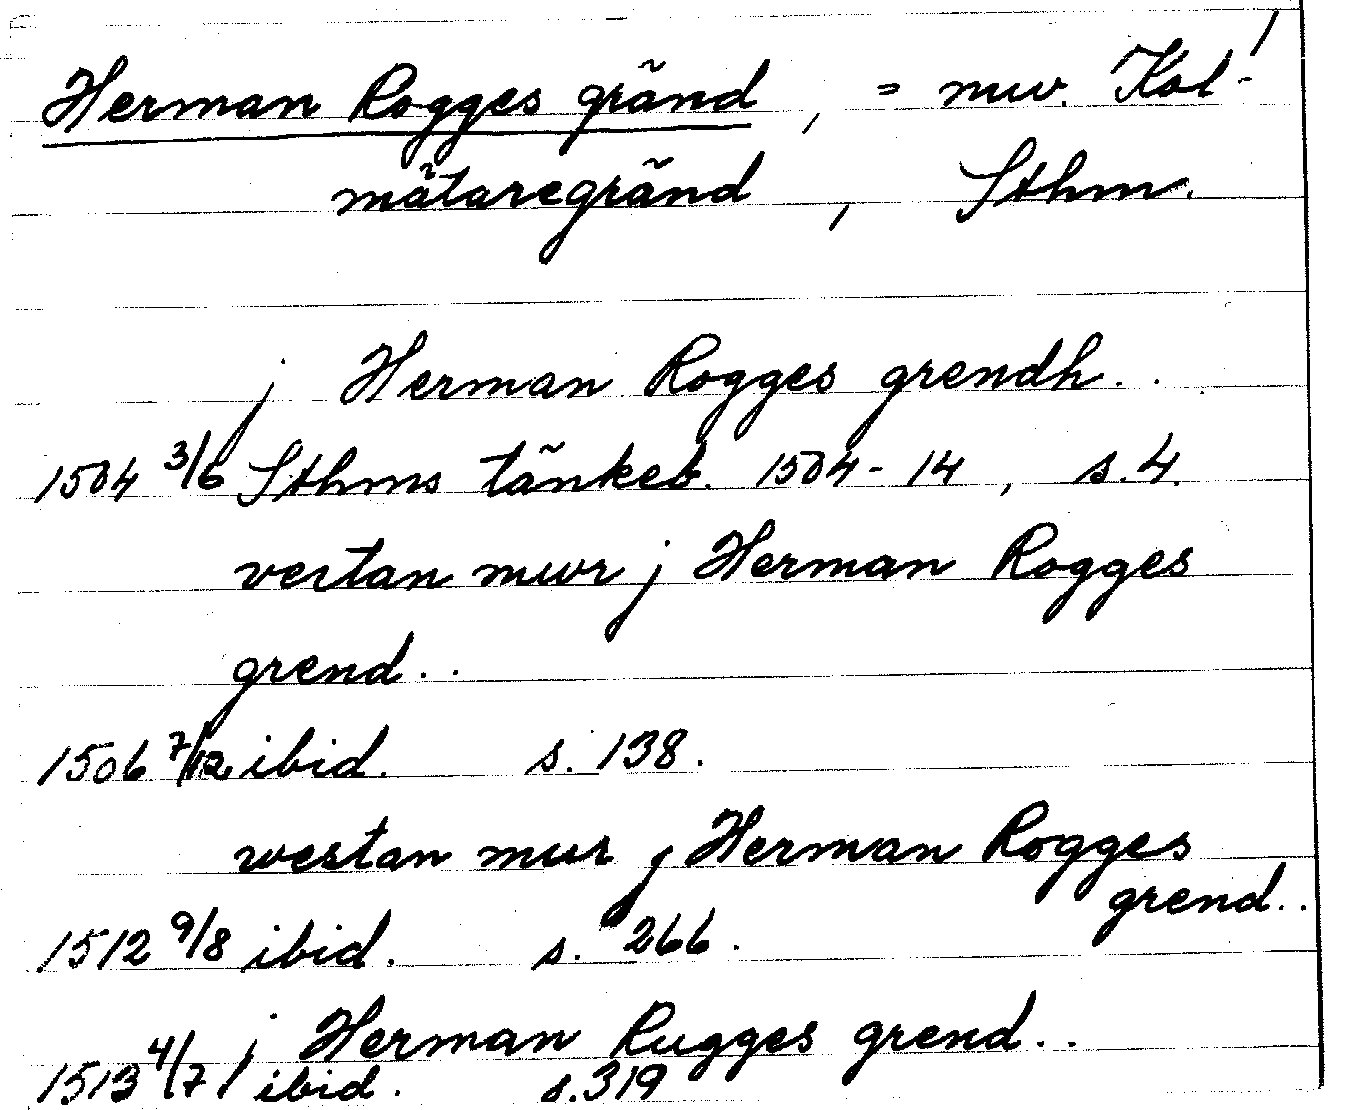 Herman Rogges gränd, = nuv. Kol-
mätaregränd, Sthm.
j Herman Rogges grendh..
1504 3/6 Sthms tänkeb. 1504-14, s.4.
vestan mwr j Herman Rogges
grend..
1506 7/12 ibid. s. 138.
westan mur j Herman Rogges
grend..
1512 9/8 ibid. s. 266.
j Herman Rugges grend..
1513 4/7 ibid. s. 319